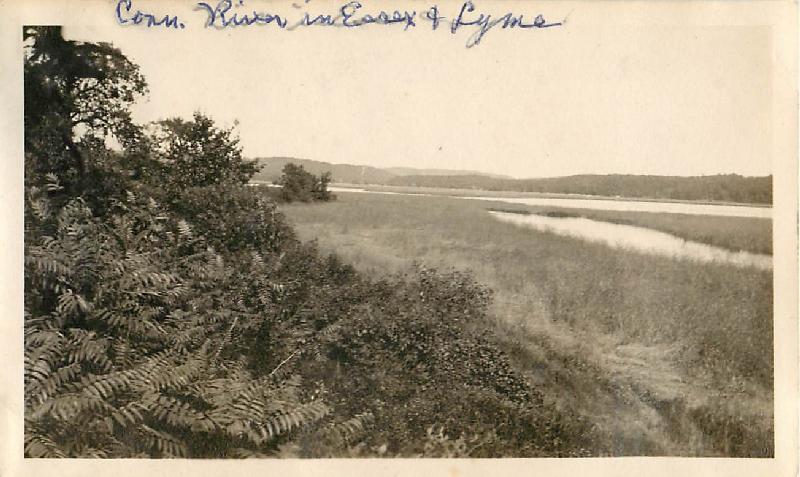 Conn. River in Essex & Lyme